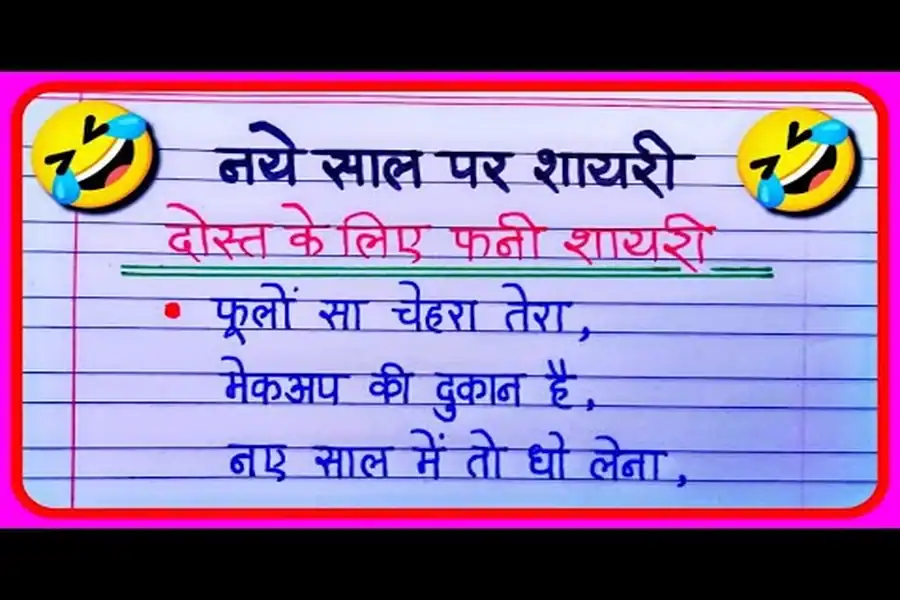 नये साल पर शायरी
दोस्त के लिए फनी शायरी
• फूलों सा चेहरा तेरा,
मेकअप की दुकान है,
नए साल में तो धो लेना,